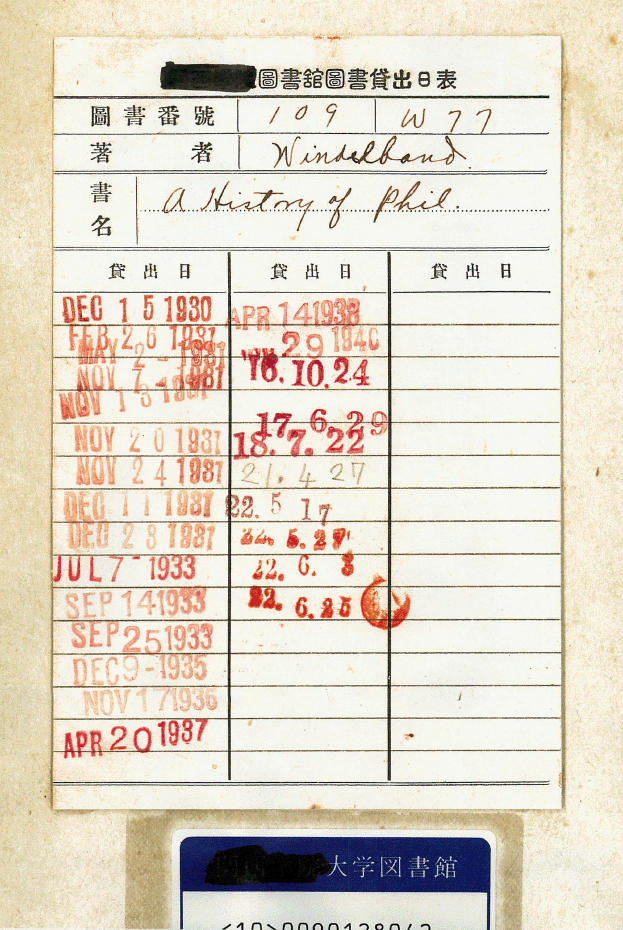 圖書館圖書貸出日表
圖書番號 109 W77
著者 Windelband.
書名 A History of Phil.
貸出日 貸出日 貸出日
DEC 15 1930
FEB 26 1931
MAY 2 - 1931
NOV 7 - 1931
NOV 1 1931
NOV 20 1931
NOV 24 1931
DEC 11 1931
DEC 28 1931
JUL 7 - 1933
SEP 14 1933
SEP 25 1933
DEC 9 - 1935
NOV 17 1936
APR 20 1937
APR 14 1938
29 1940
16.10.24
17.6.29
18.7.22
21.4 27
22.5 17
22.5.27
22.6.3
22.6.25
大学図書館